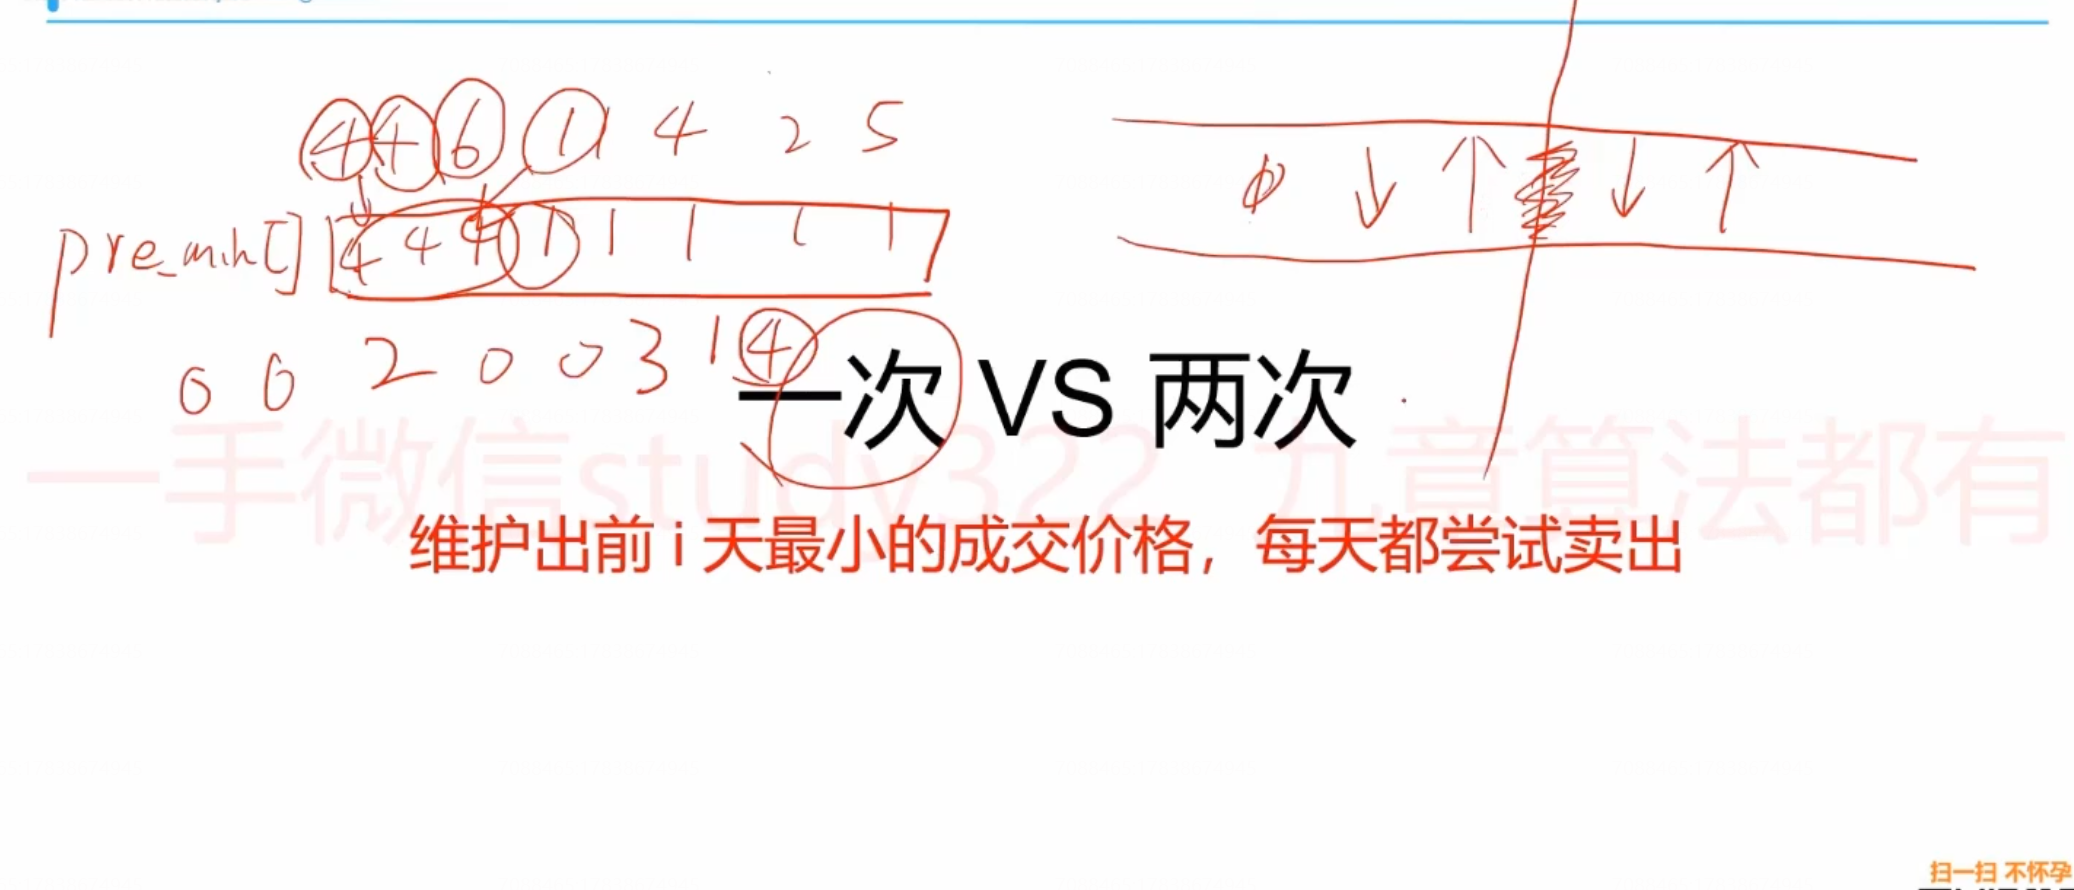 4 4 6 1 1 4 2 5
pre_min[] 4 4 4 1 1 1 1 1
0 0 2 0 0 3 1 4
一次 VS 两次
一手微信study322 九章算法都有
维护出前 i 天最小的成交价格，每天都尝试卖出
扫一扫 不怀孕